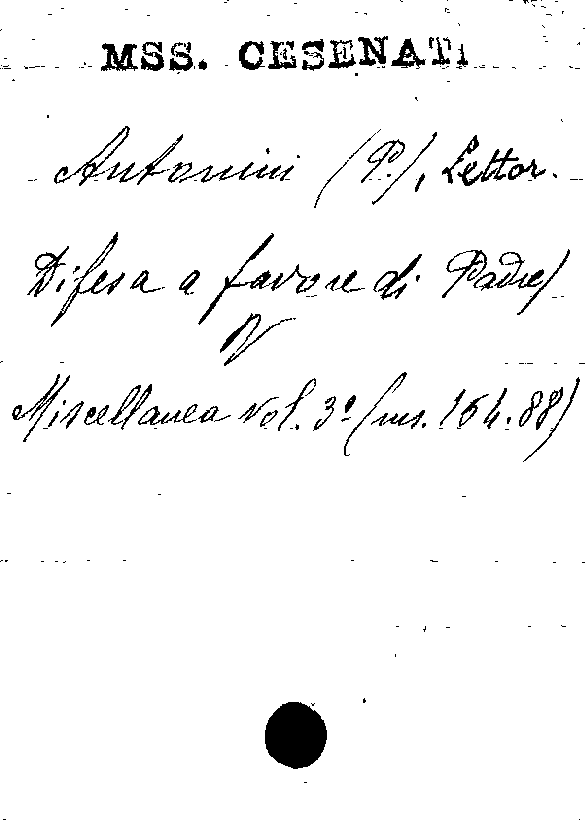 MSS. CESENATI
Antonini (P.), Lettor.
Difesa a favore di Padre
Miscellanea vol. 3º (ms. 164.88)